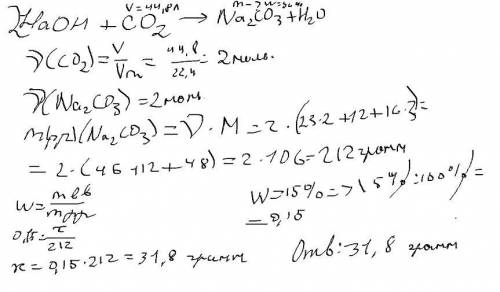 V=44,8л
2NaOH + CO2 → Na2CO3 + H2O
ν(CO2) = V/Vm = 44,8/22,4 = 2 моль.
ν(Na2CO3) = 2 моль.
m(рр)(Na2CO3) = ν · M = 2 · (23·2+12+16·3) =
= 2 · (46+12+48) = 2·106 = 212 грамм
W = mвв/mрр
W = 15% => 15% : 100% =
= 0,15
0,15 = x/212
x = 0,15 · 212 = 31,8 грамм
Отв: 31,8 грамм